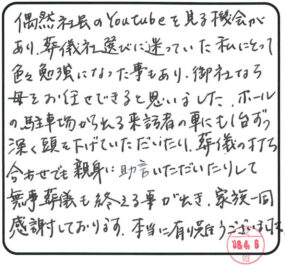 偶然社長のYoutubeを見る機会が
あり、葬儀社選びに迷っていた私にとって
色々勉強になった事もあり、御社なら
母をお任せできると思いました。ホール
の駐車場から出る来訪者の車にも1台ずつ
深く頭を下げていただいたり、葬儀の打ち
合わせでも親身に助言いただいたりして
無事葬儀も終える事が出来、家族一同
感謝しております。本当に有り難うございました